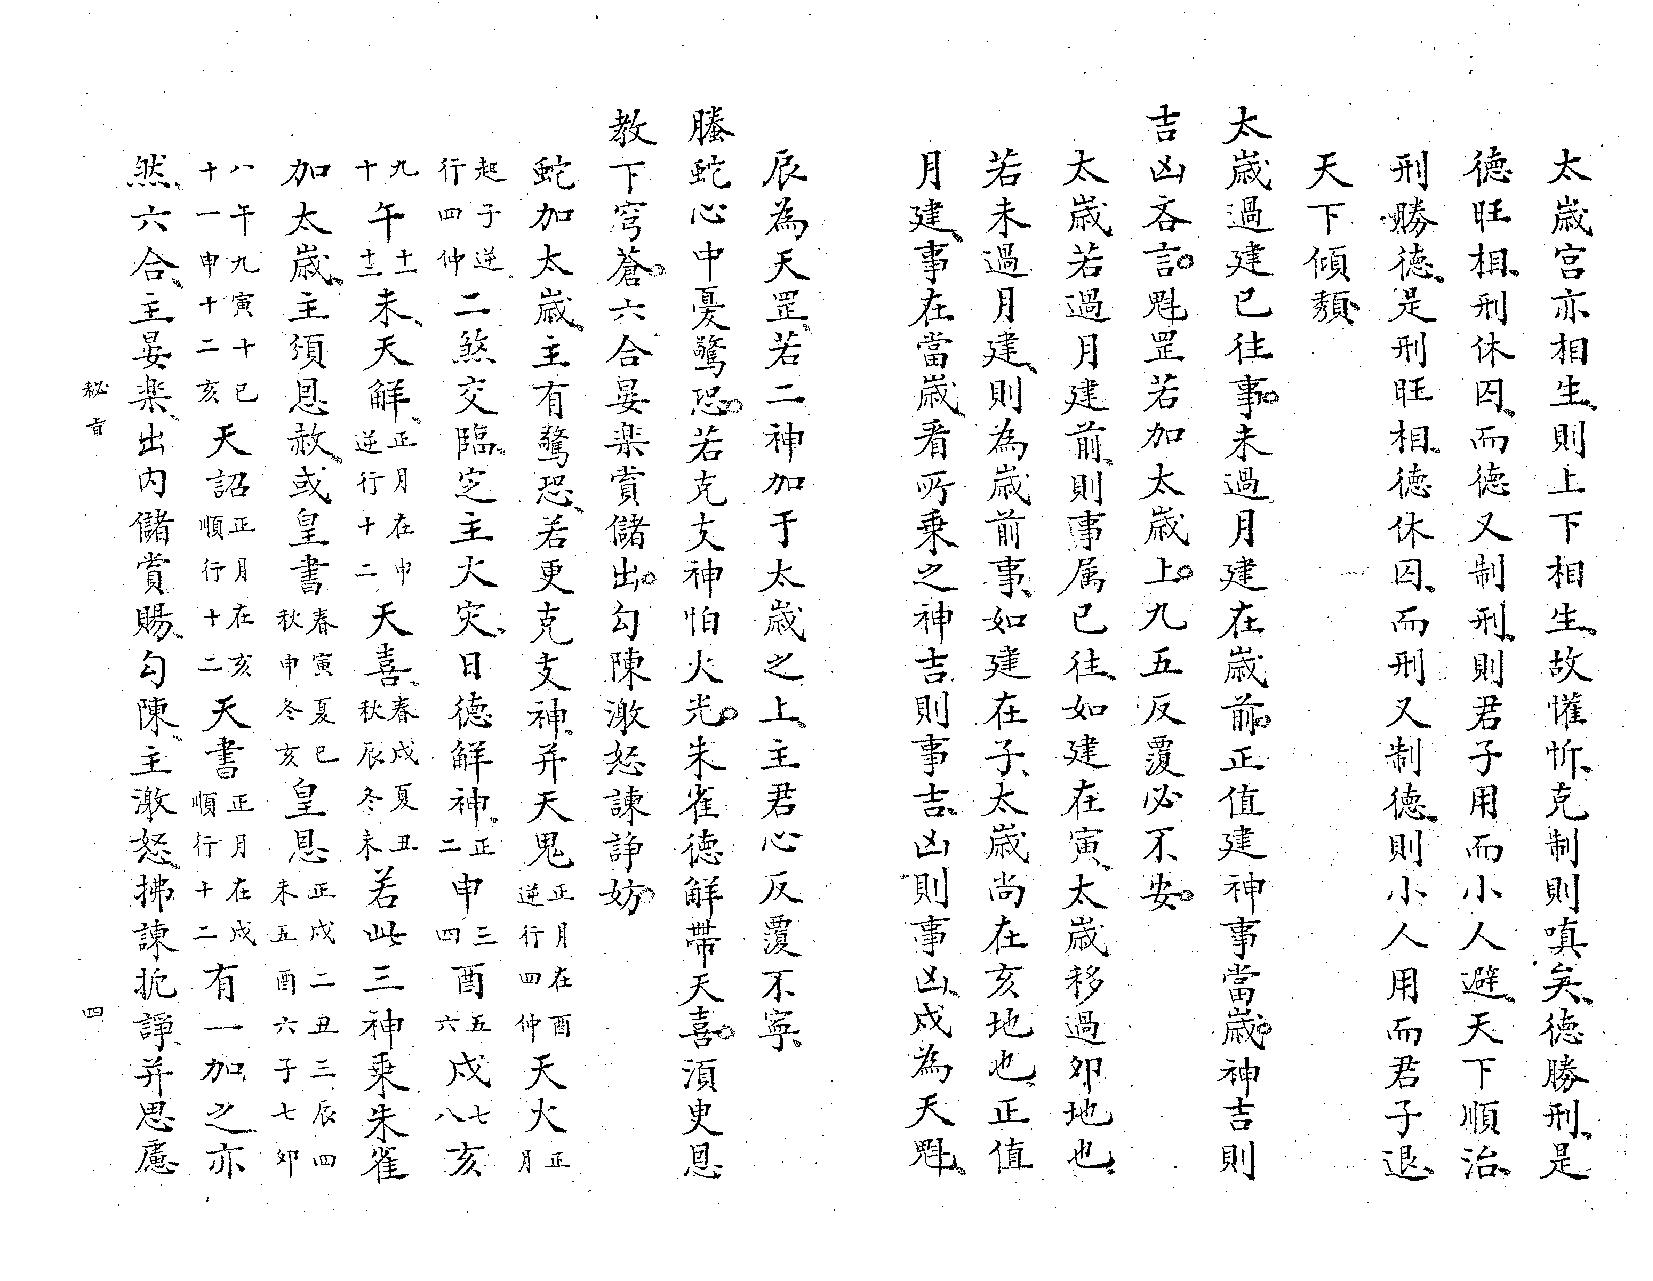 太歲宮亦相生、則上下相生、故懽忻、克制則嗔矣、德勝刑、是
德旺相、刑休囚、而德又制刑、則君子用而小人避、天下順治、
刑勝德、是刑旺相、德休囚、而刑又制德、則小人用而君子退、
天下傾頹、
太歲過建已往事。未過月建在歲前。正值建神事當歲。神吉則
吉凶吝言。魁罡若加太歲上。九五反覆必不安。
太歲若過月建前、則事属已往、如建在寅、太歲移過卯地也、
若未過月建、則為歲前事、如建在子、太歲尚在亥地也、正值
月建、事在當歲、看所乗之神吉、則事吉、凶則事凶、戌為天魁、
辰為天罡、若二神加于太歲之上、主君心反覆不寧、
螣蛇心中憂驚恐。若克支神怕火光。朱雀德解帶天喜。湏史恩
教下穹蒼。六合晏楽賞儲出。勾陳激怒諫諍妨。
蛇加太歲、主有驚恐、若更克支神、并天鬼正月在酉逆行四仲天火正月
起子逆行四仲二煞交臨、定主火灾、日德解神、正二申三四酉五六戌七八亥
九十午十一十二未、天解、正月在申逆行十二天喜、春戌夏丑秋辰冬未若此三神乗朱雀
加太歲、主須恩赦、或皇書春寅夏巳秋申冬亥皇恩正戌二丑三辰四未五酉六子七卯
八午九寅十巳十一申十二亥天詔正月在亥順行十二天書正月在戌順行十二有一加之亦
然、六合、主晏楽、出内儲賞賜、勾陳、主激怒、拂諫扼諍、并思慮
秘旨
四